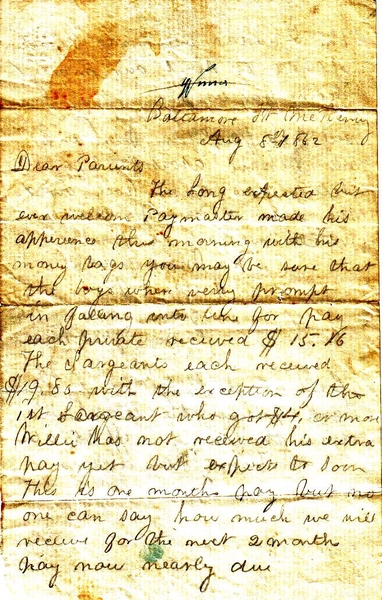 Baltamore Ft McHenry
Aug 8th 1862
Dear Parients
The Long expected but
ever welcom Paymaster made his
apperence this morning with his
money bags you may be sure that
the boys wher verry prompt
in falling into line for pay
each private received $ 15.16
The Sargeants each received
$19.85 with the exception of the
1st Sargeant who got $4, or more
Willie has not received his extra
pay yet but expects to soon
This is one month pay but no
one can say how much we will
receive for the next 2 month
pay now nearly due